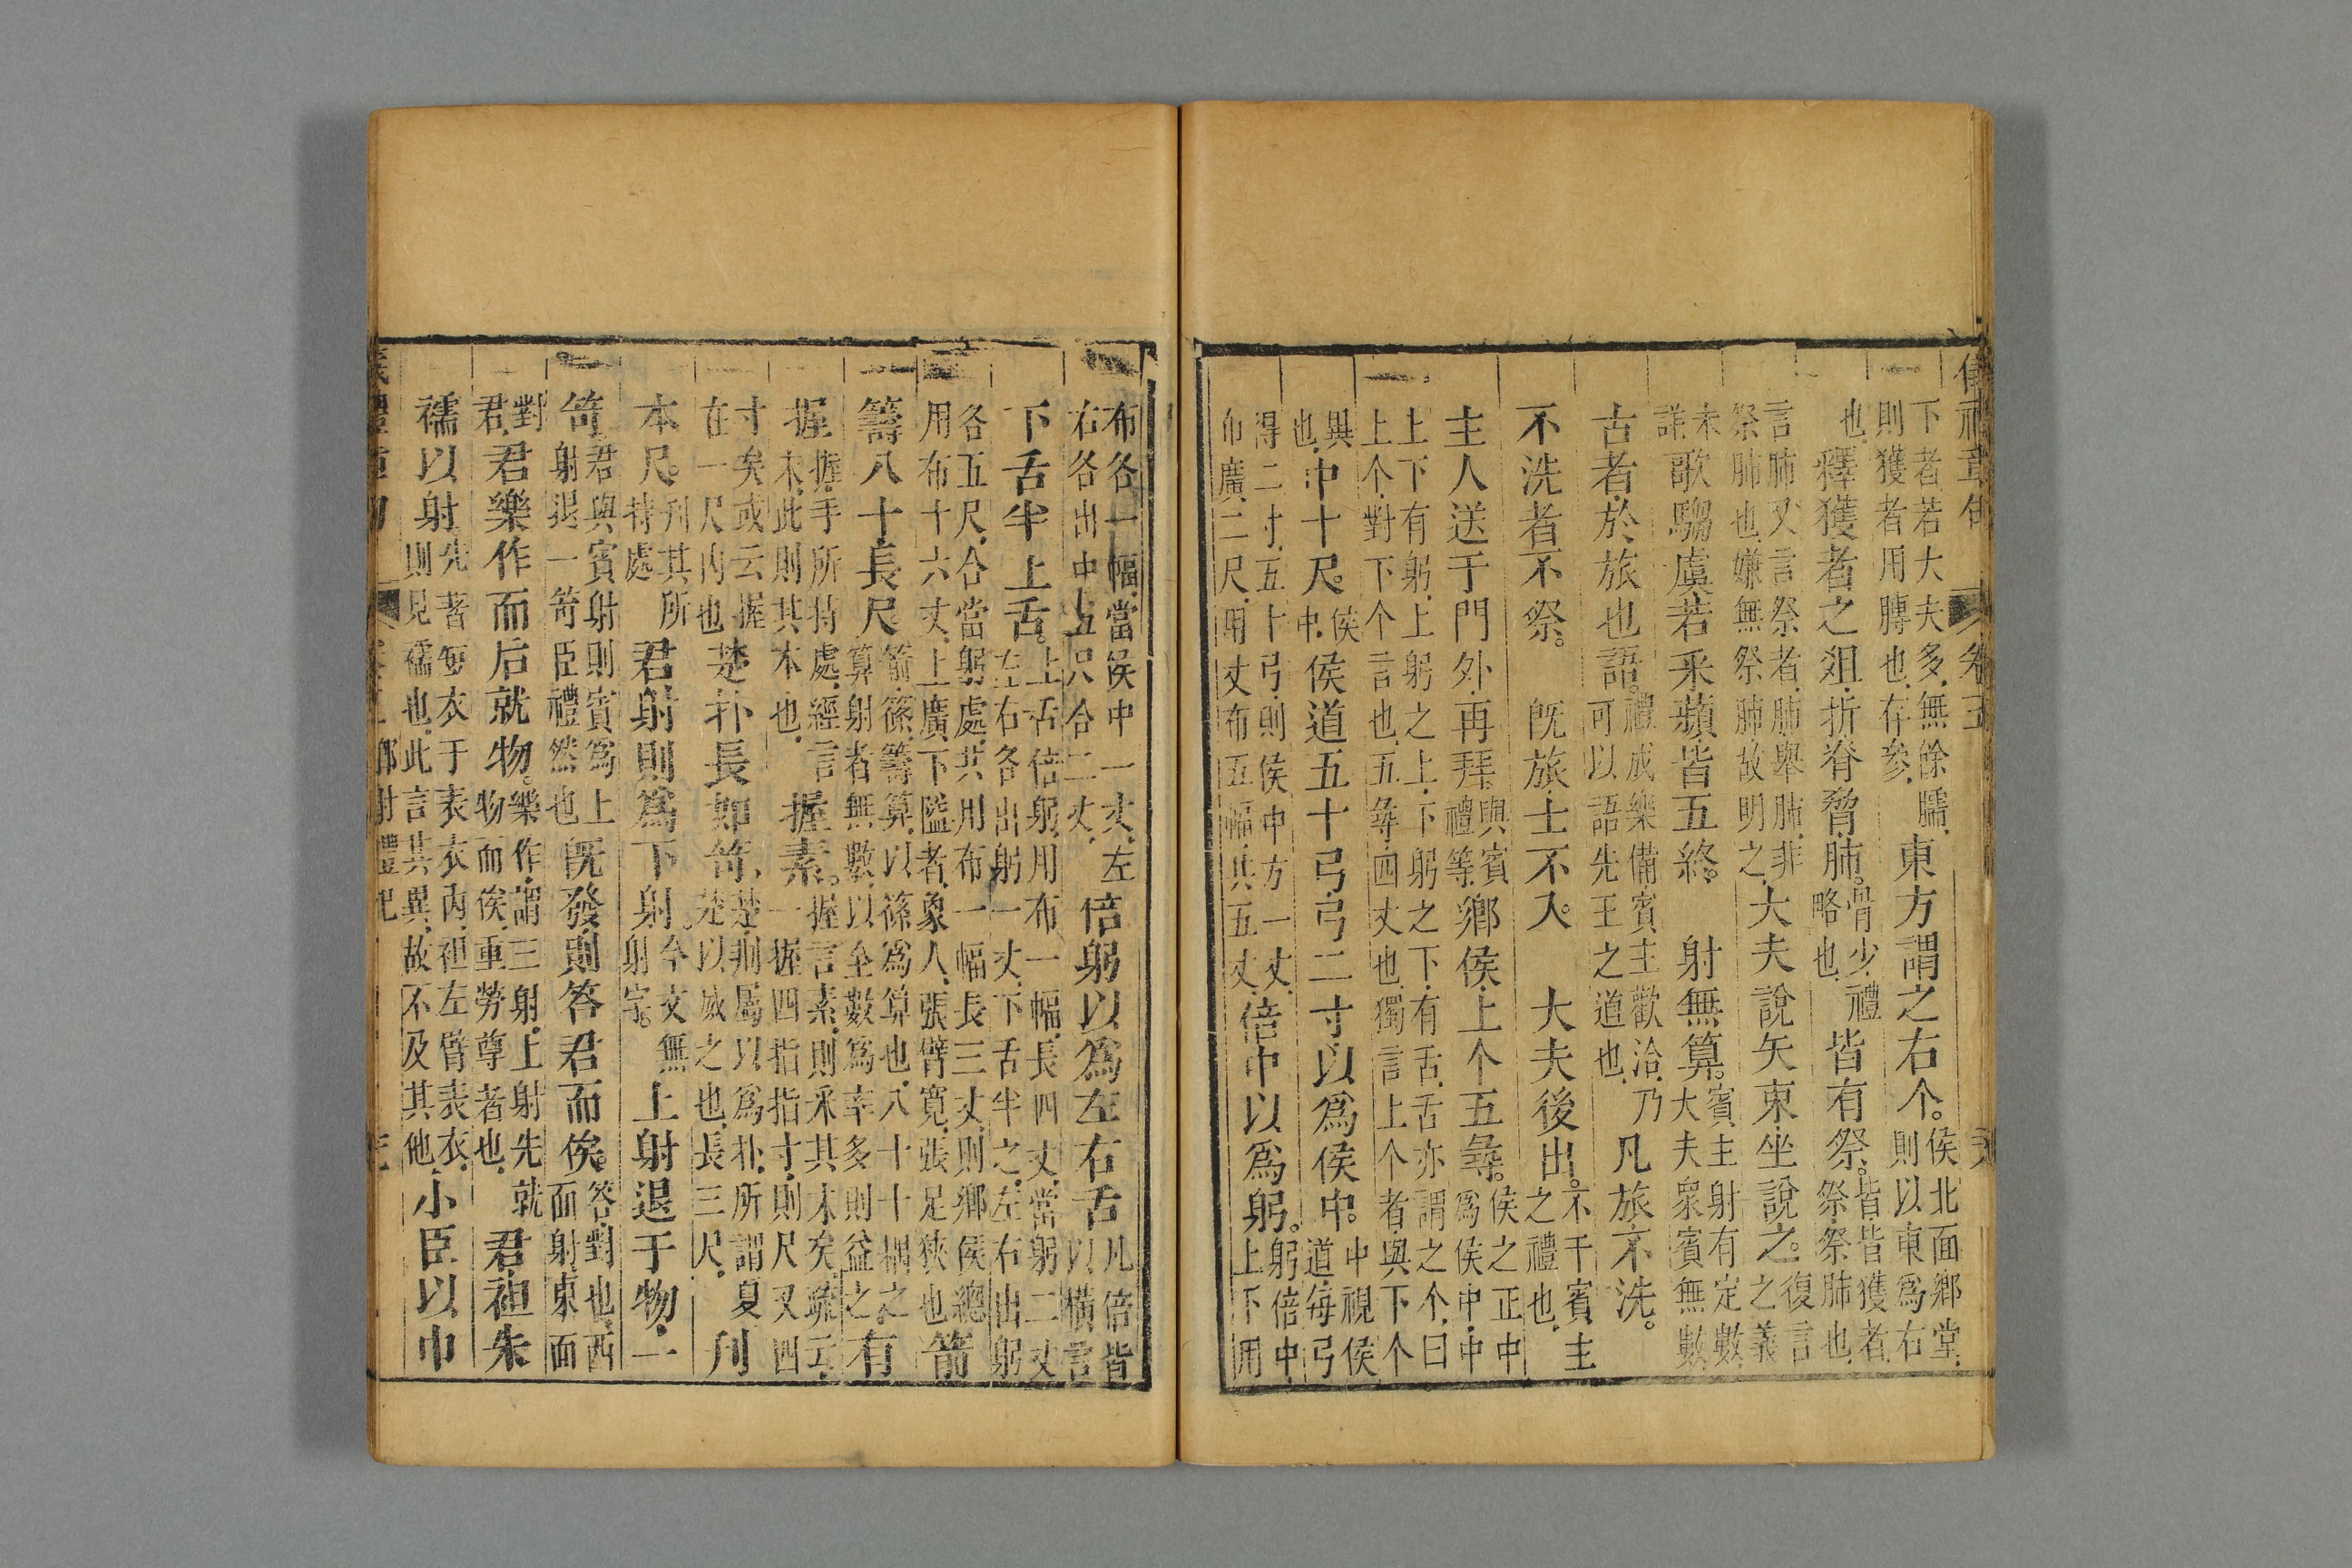 儀禮章句 卷五
下者若大夫多無餘臑東方謂之右个侯北面鄉堂
則獲者用膊也存參則以東爲右
也釋獲者之俎折脊脅肺骨少禮略也皆有祭皆皆獲者祭祭肺也
言肺又言祭者肺舉肺非祭肺也嫌無祭肺故明之大夫說矢束坐說之復言之義
未詳歌騶虞若采蘋皆五終 射無算賓主射有定數大夫眾賓無數
古者於旅也語禮成樂備賓主歡洽乃可以語先王之道也凡旅不洗
不洗者不祭 旣旅士不入 大夫後出不干賓主之禮也
主人送于門外再拜與賓禮等鄉侯上个五尋侯之正中爲侯中中
上下有躬上躬之上下躬之下有舌舌亦謂之个曰
上个對下个言也五尋四丈也獨言上个者與下个
異也中十尺侯中侯道五十弓弓二寸以爲侯中中視侯道每弓
得二寸五十弓則侯中方一丈
布廣二尺用丈布五幅共五丈倍中以爲躬躬倍中上下用
布各一幅當侯中一丈左
右各出中五尺合二丈倍躬以爲左右舌凡倍皆以橫言
下舌半上舌上舌倍躬用布一幅長四丈當躬二丈左右各出躬一丈下舌半之左右出躬
各五尺合當躬處共用布一幅長三丈則鄉侯總
用布十六丈上廣下隘者象人張臂寬張足狹也箭
籌八十長尺箭篠籌算以篠爲算也八十十耦之算射者無數以全數爲率多則益之有
握握手所持處經言末此則其本也 握素握言素則采其末矣疏云一握四指指寸則尺又四
寸矣或云握在一尺內也楚扑長如笴楚荆屬以爲扑所謂夏楚以威之也長三尺刋
本尺刋其所持處 君射則爲下射今文無射字 上射退于物一
笴君與賓射則賓爲上射退一笴臣禮然也旣發則答君而俟答對也西面射東面
對君君樂作而后就物樂作謂三射上射先就物而俟重勞尊者也 君袒朱
襦以射先著每衣于表衣內袒左臂表衣則見襦也此言其異故不及其他小臣以巾
儀禮章句 卷五 鄉射禮記